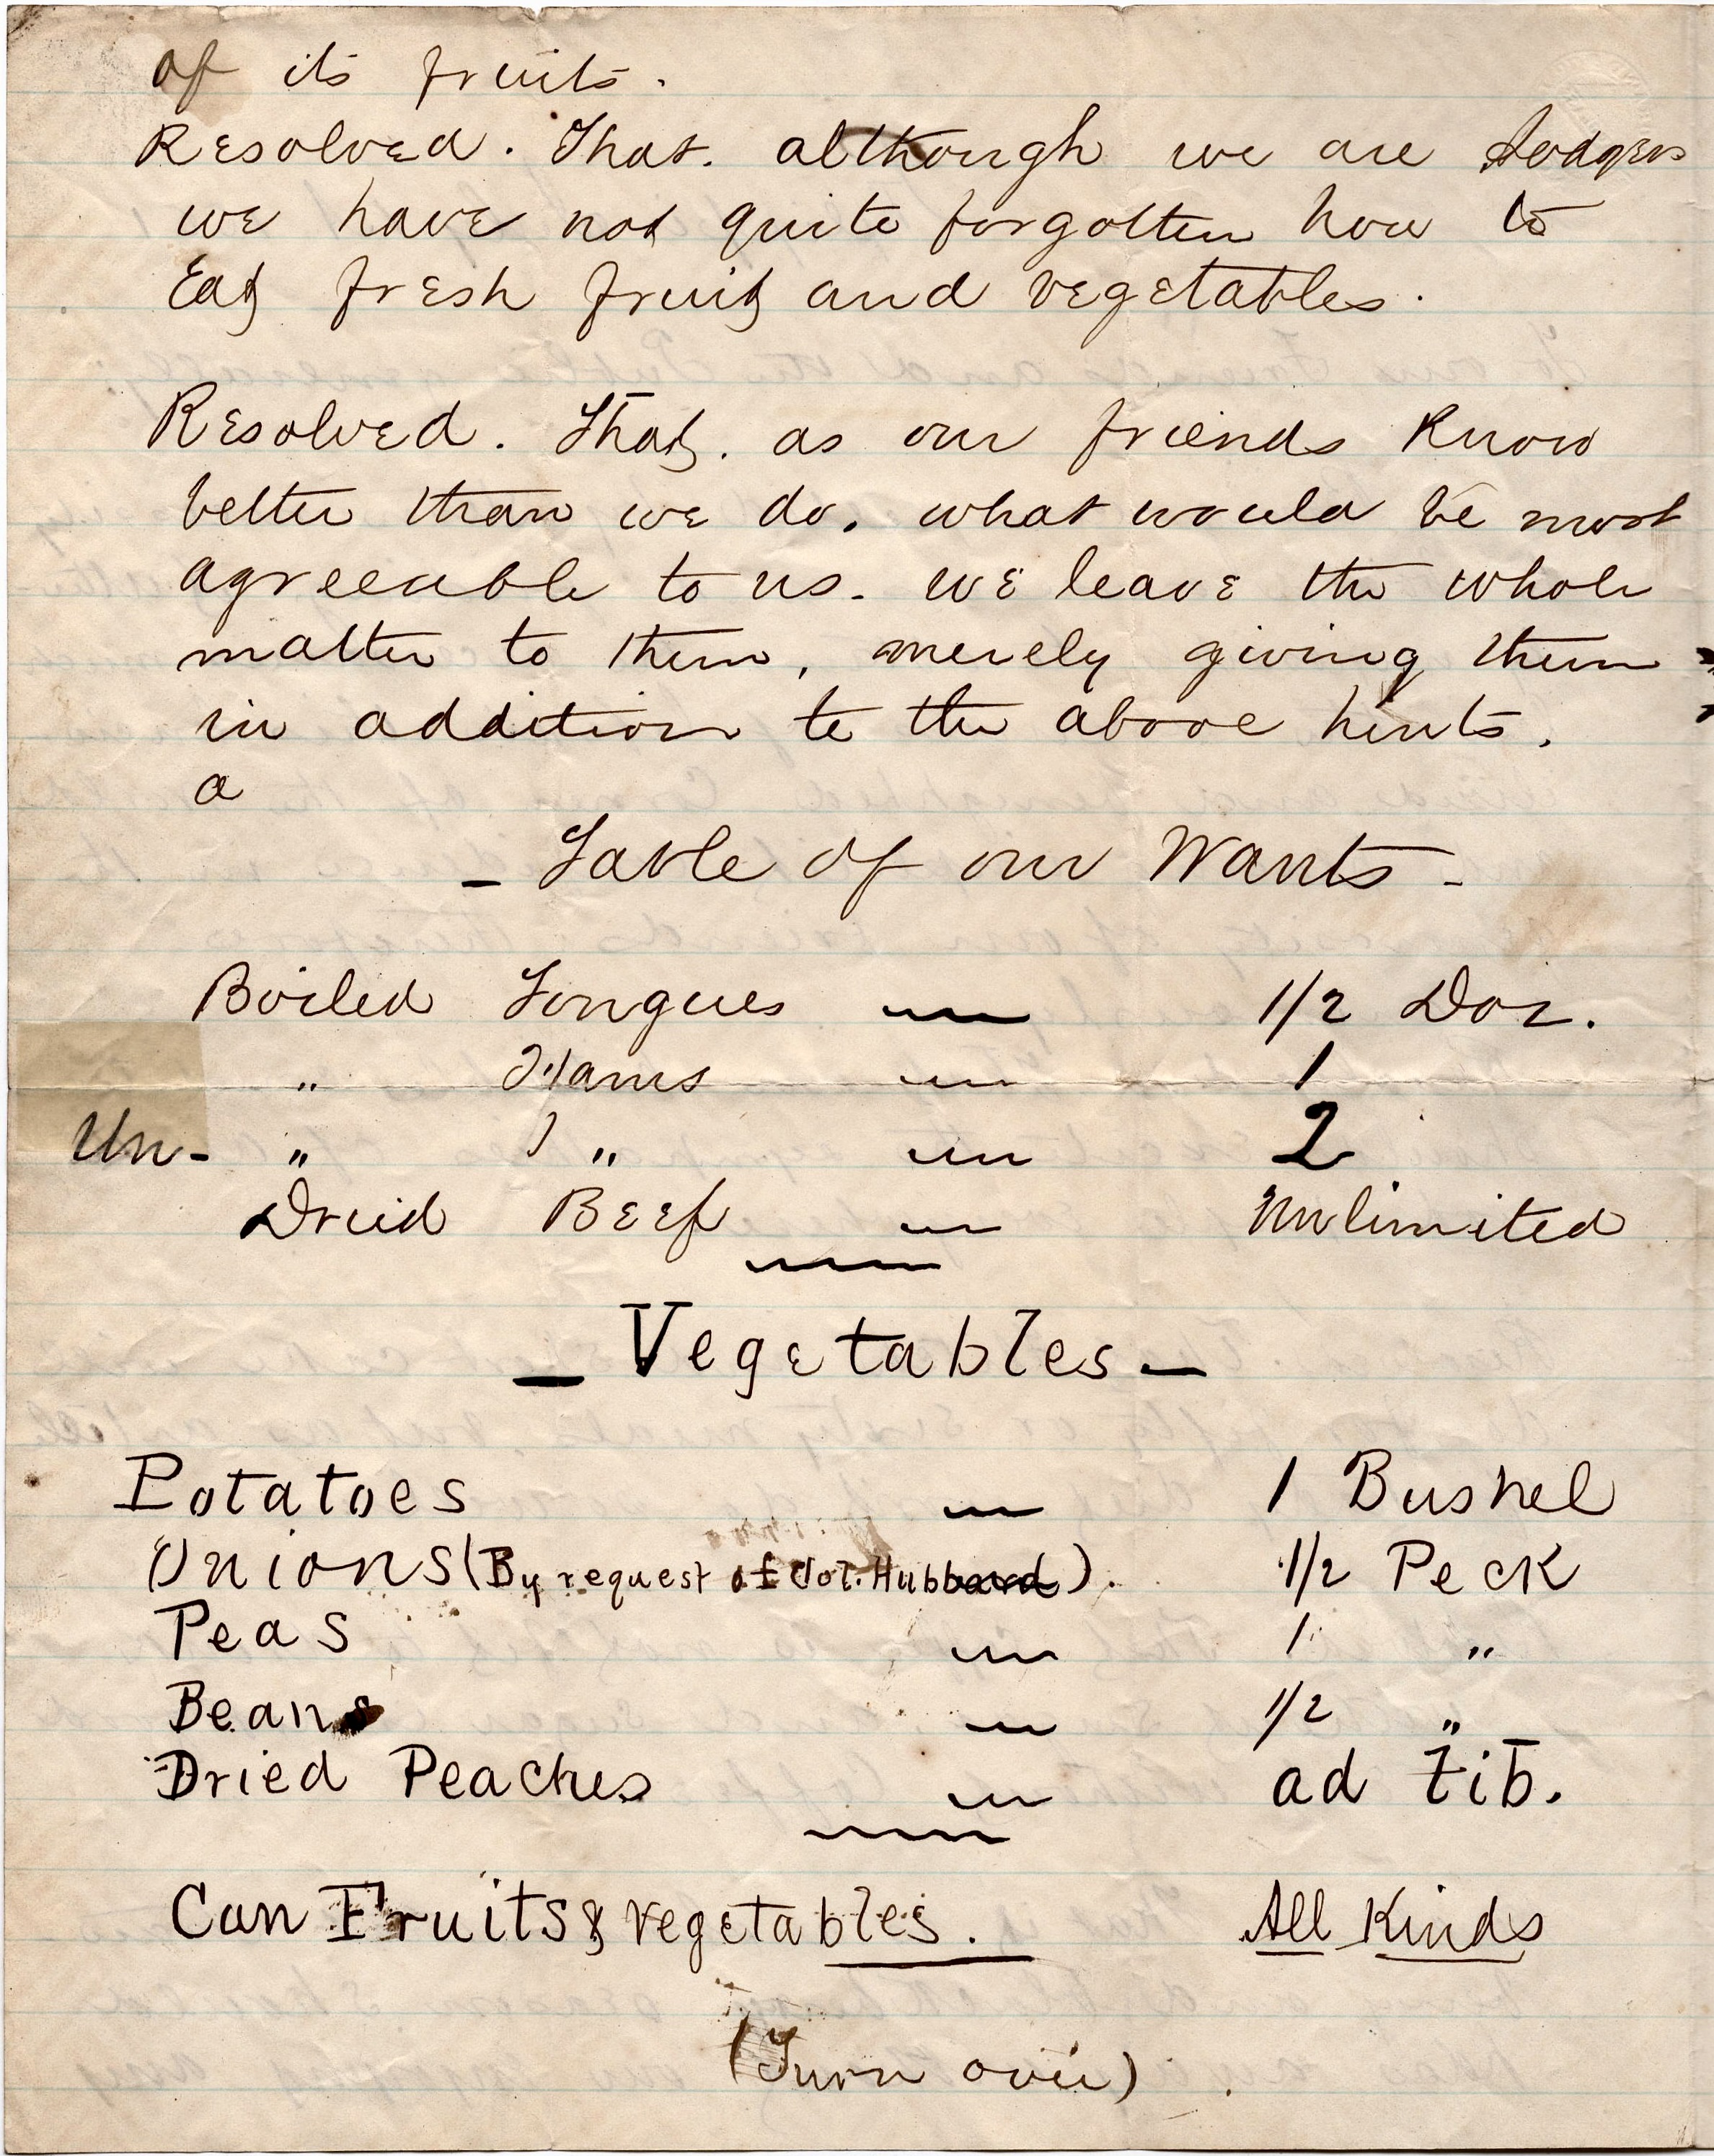 of its fruits.
Resolved. That. although we are Sodgers
we have not quite forgotten how to
Eat fresh fruit and vegetables.
Resolved. That. as our friends Know
better than we do. what would be most
agreeable to us. we leave the whole
matter to them, merely giving them
in addition to the above hints.
a
- Table of our Wants -
Boiled Tongues — 1/2 Doz.
" Hams — 1
Un- " " — 2
Dried Beef — Unlimited
- Vegetables -
Potatoes — 1 Bushel
Onions (By request of Col. Hubbard). 1/2 Peck
Peas — 1 "
Beans — 1/2 "
Dried Peaches — ad Lib.
Can Fruits & Vegetables. All Kinds
(Turn over)